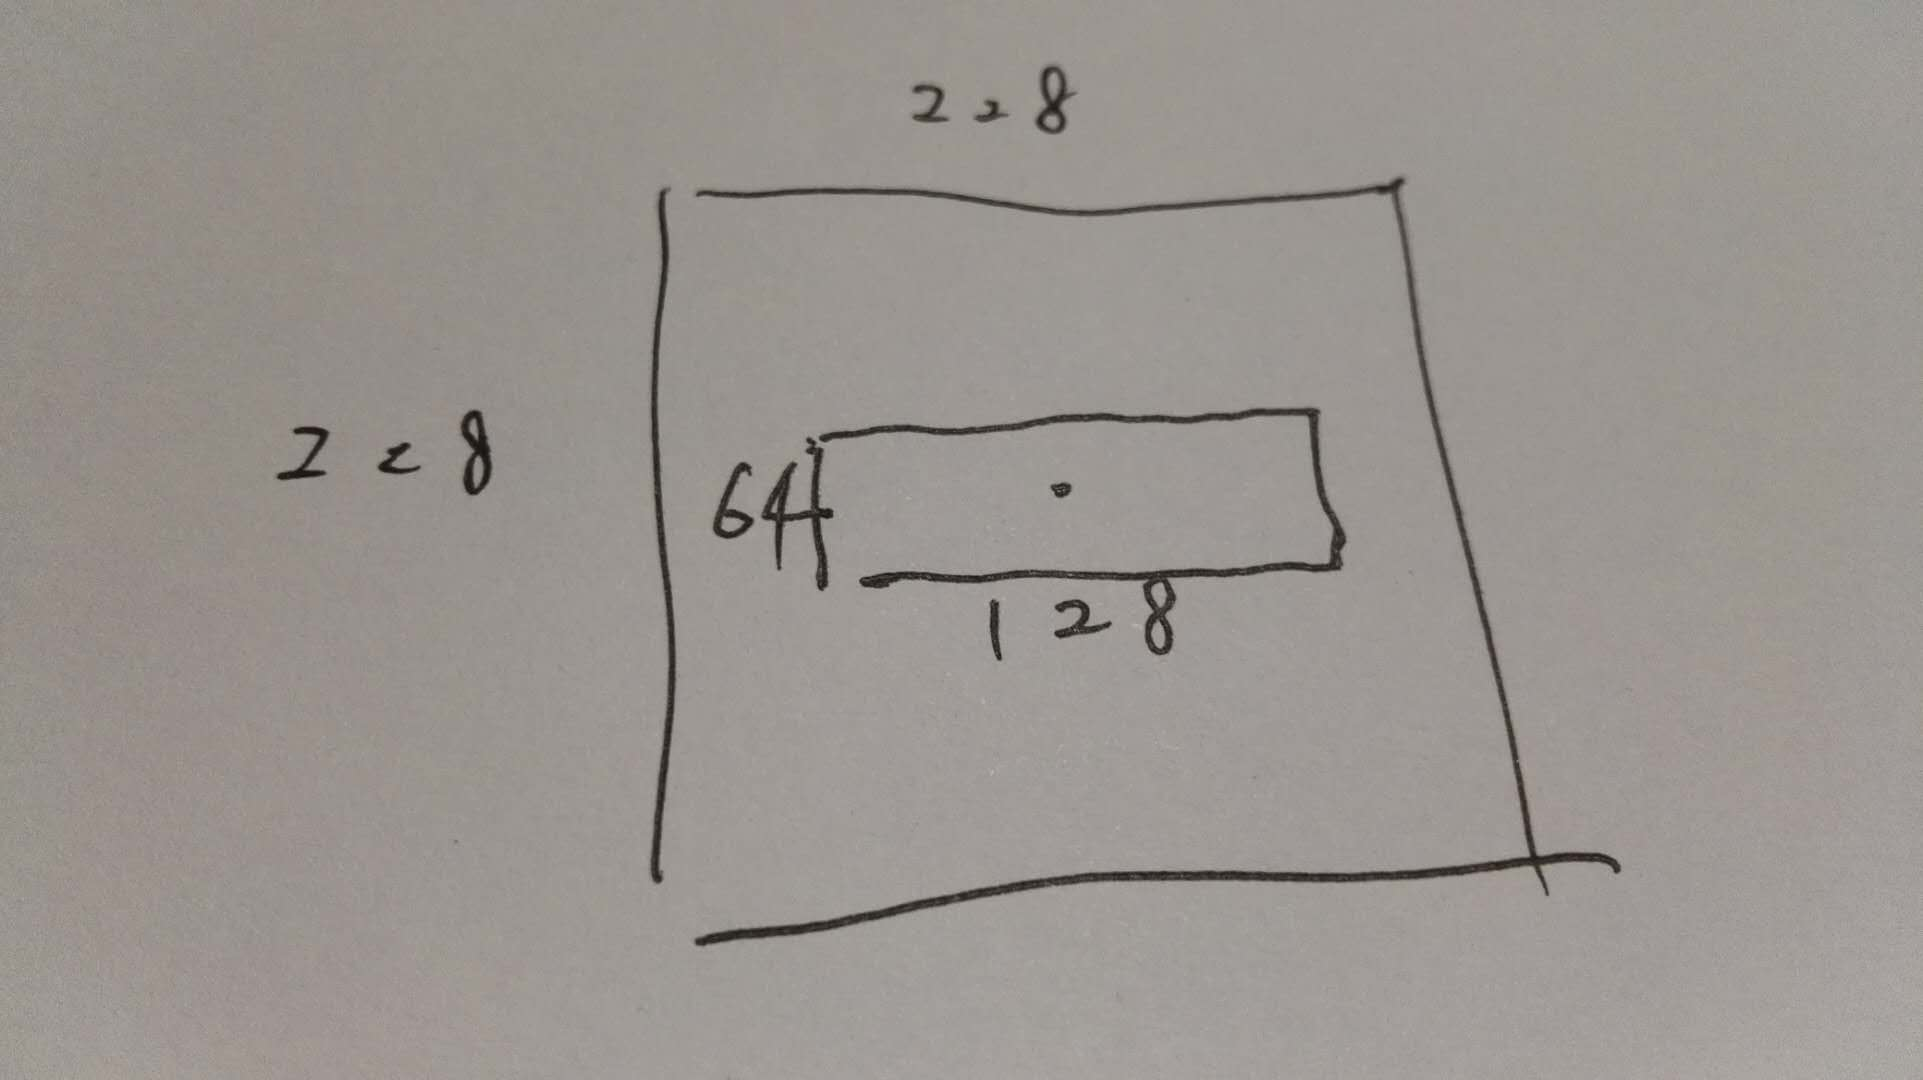 228
228
64
128